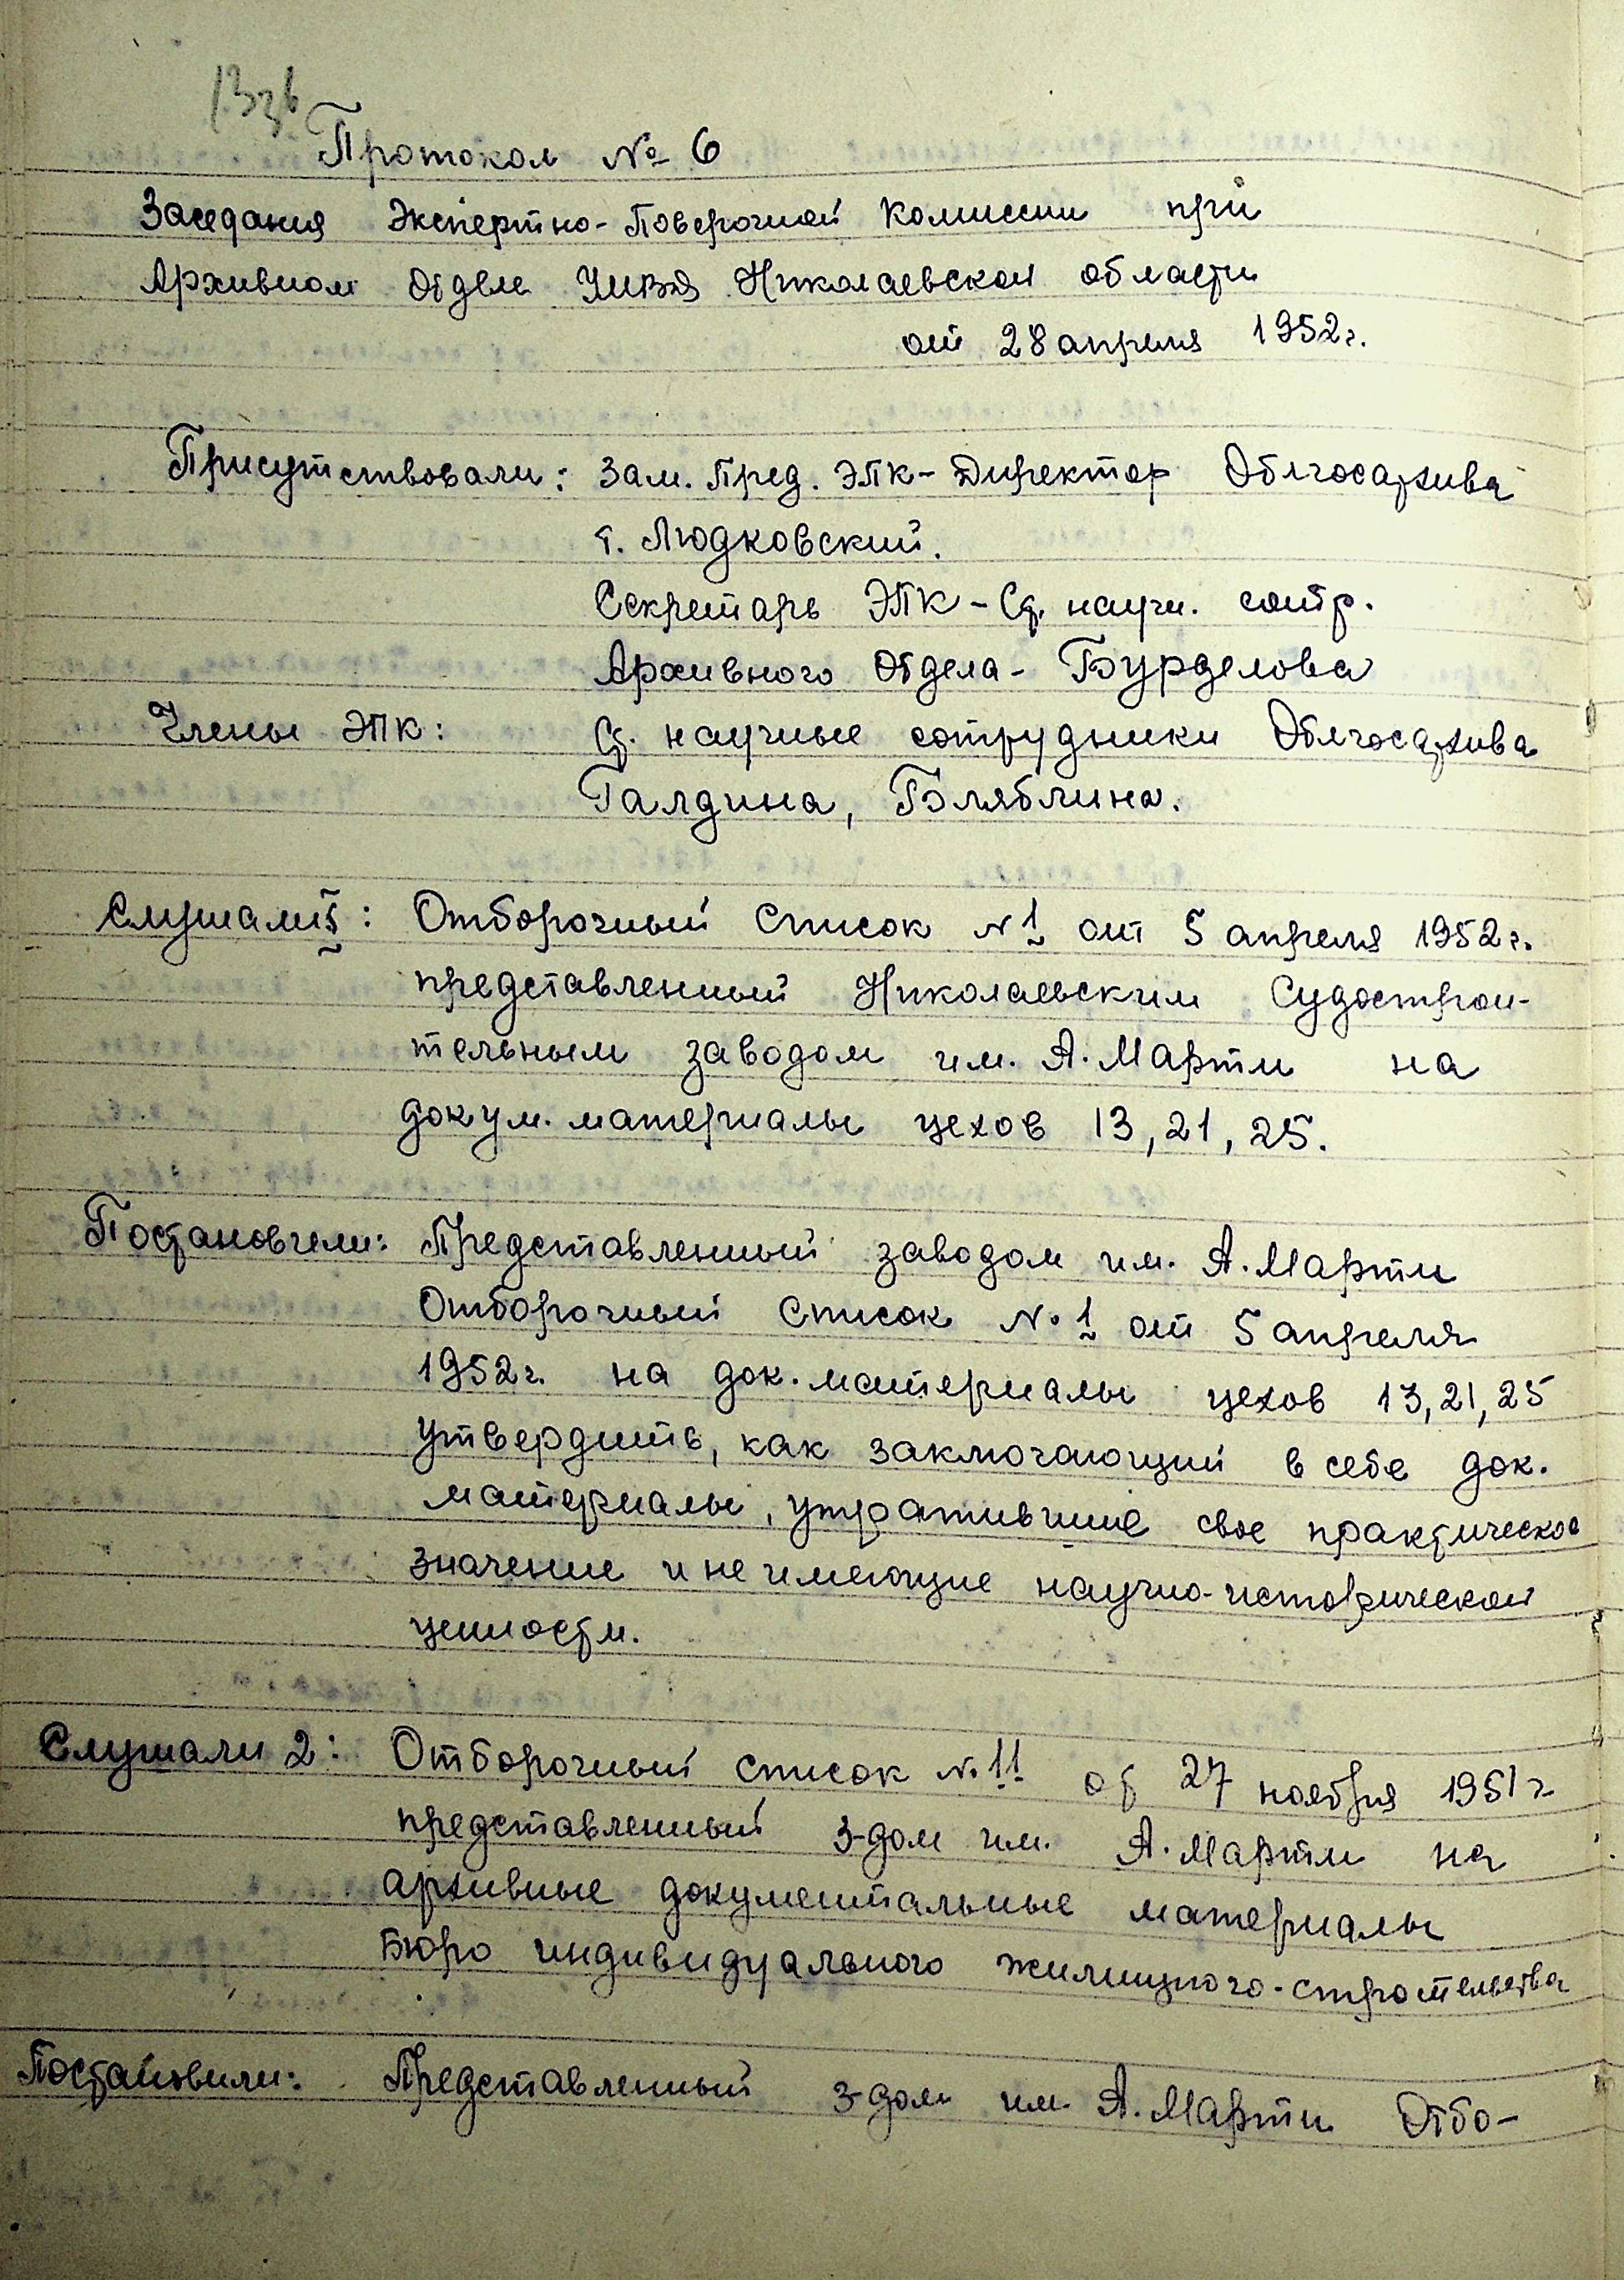 Протокол № 6
Заседания Экспертно-Поверочной Комиссии при
Архивном Отделе УМВД Николаевской области
от 28 апреля 1952г.
Присутствовали: Зам. Пред. ЭПК - Директор Облгосархива
т. Людковский.
Секретарь ЭПК - Ст. научн. сотр.
Архивного Отдела - Бурделова
Члены ЭПК: Ст. научные сотрудники Облгосархива
Галдина, Бляблина.
Слушали: Отборочный Список № 1 от 5 апреля 1952г.
представленный Николаевским Судострои-
тельным заводом им. А. Марти на
докум. материалы цехов 13, 21, 25.
Постановили: Представленный заводом им. А. Марти
Отборочный Список № 1 от 5 апреля
1952г. на док. материалы цехов 13, 21, 25
утвердить, как заключающий в себе док.
материалы, утратившие свое практическое
значение и не имеющие научно-исторической
ценности.
Слушали 2: Отборочный список № 11 от 27 ноября 1951г.
представленный з-дом им. А. Марти на
архивные документальные материалы
Бюро индивидуального жилищного-строительства
Постановили: Представленный з-дом им. А. Марти Отбо-